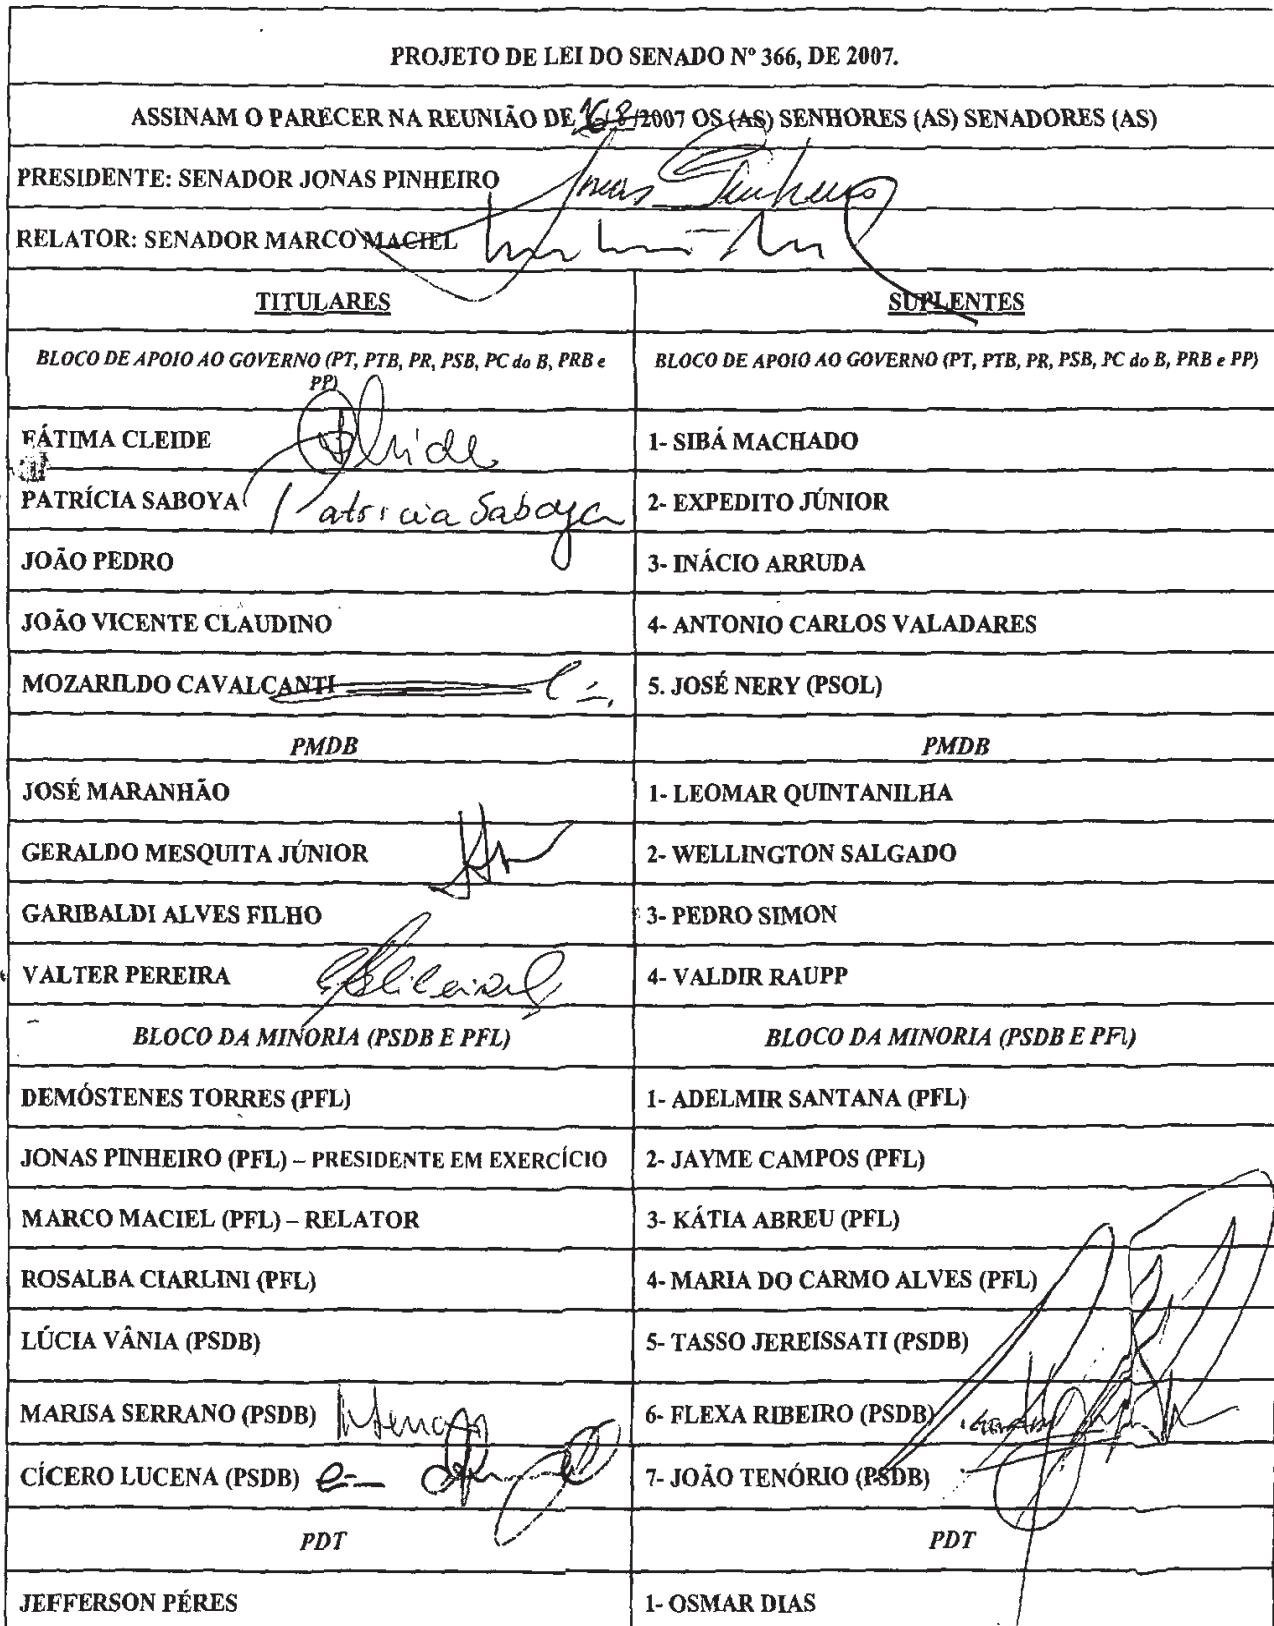 PROJETO DE LEI DO SENADO Nº 366, DE 2007.
ASSINAM O PARECER NA REUNIÃO DE 16/8/2007 OS (AS) SENHORES (AS) SENADORES (AS)
PRESIDENTE: SENADOR JONAS PINHEIRO Jonas Pinheiro
RELATOR: SENADOR MARCO MACIEL
TITULARES
SUPLENTES
BLOCO DE APOIO AO GOVERNO (PT, PTB, PR, PSB, PC do B, PRB e
PP)
BLOCO DE APOIO AO GOVERNO (PT, PTB, PR, PSB, PC do B, PRB e PP)
FÁTIMA CLEIDE
1- SIBÁ MACHADO
PATRÍCIA SABOYA Patrícia Saboya
2- EXPEDITO JÚNIOR
JOÃO PEDRO
3- INÁCIO ARRUDA
JOÃO VICENTE CLAUDINO
4- ANTONIO CARLOS VALADARES
MOZARILDO CAVALCANTI
5. JOSÉ NERY (PSOL)
PMDB
PMDB
JOSÉ MARANHÃO
1- LEOMAR QUINTANILHA
GERALDO MESQUITA JÚNIOR
2- WELLINGTON SALGADO
GARIBALDI ALVES FILHO
3- PEDRO SIMON
VALTER PEREIRA
4- VALDIR RAUPP
BLOCO DA MINORIA (PSDB E PFL)
BLOCO DA MINORIA (PSDB E PFL)
DEMÓSTENES TORRES (PFL)
1- ADELMIR SANTANA (PFL)
JONAS PINHEIRO (PFL) – PRESIDENTE EM EXERCÍCIO
2- JAYME CAMPOS (PFL)
MARCO MACIEL (PFL) – RELATOR
3- KÁTIA ABREU (PFL)
ROSALBA CIARLINI (PFL)
4- MARIA DO CARMO ALVES (PFL)
LÚCIA VÂNIA (PSDB)
5- TASSO JEREISSATI (PSDB)
MARISA SERRANO (PSDB)
6- FLEXA RIBEIRO (PSDB)
CÍCERO LUCENA (PSDB)
7- JOÃO TENÓRIO (PSDB)
PDT
PDT
JEFFERSON PÉRES
1- OSMAR DIAS